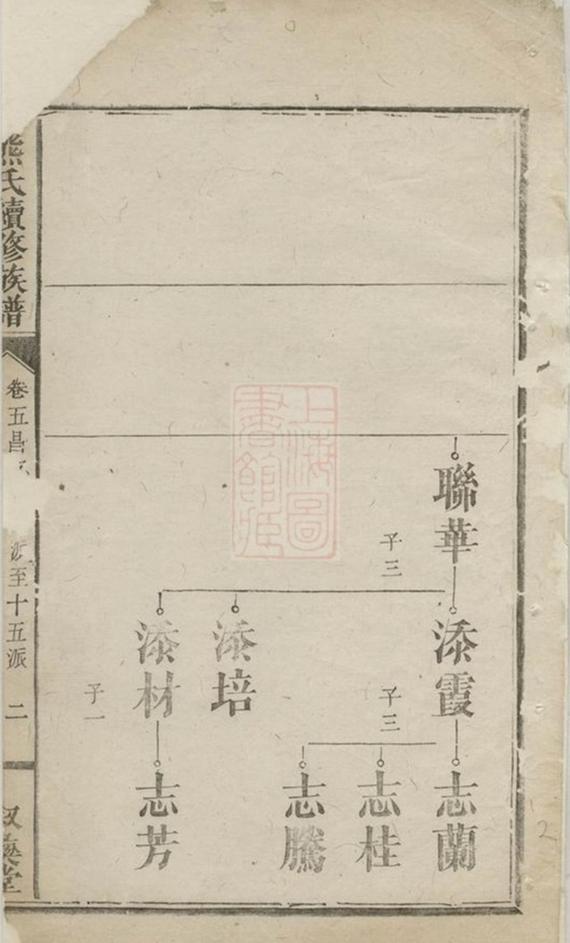 聯華
子三
添霞
添培
添材
子三
子一
志蘭
志桂
志騰
志芳
熊氏續修族譜
卷五昌
至十五派 二
堂
上海圖書館藏